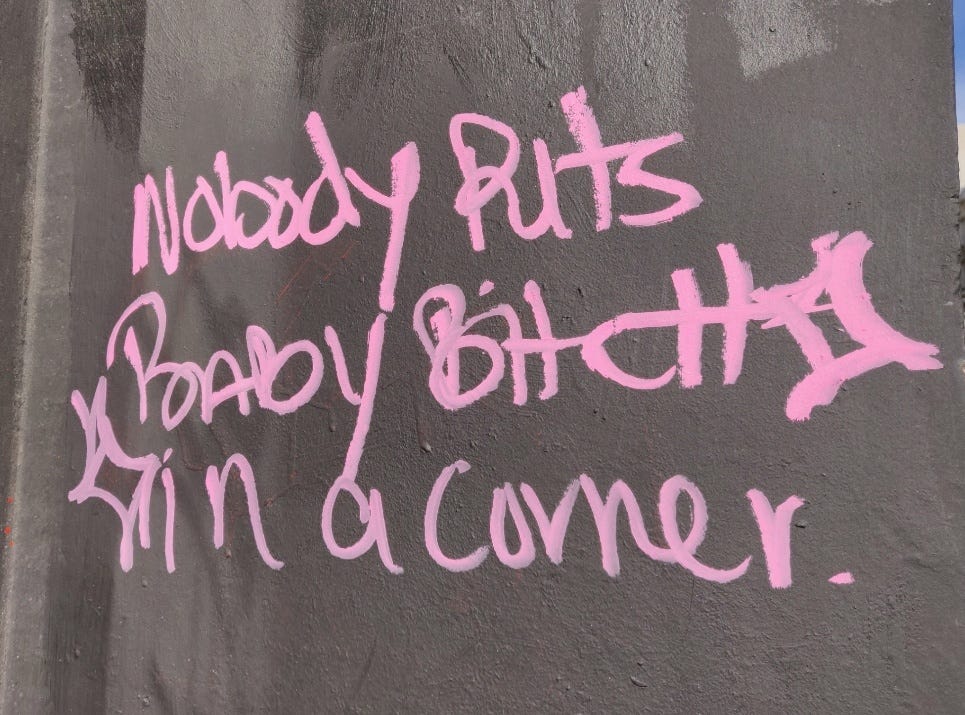 Nobody Puts
BABY BitcH
in a corner.